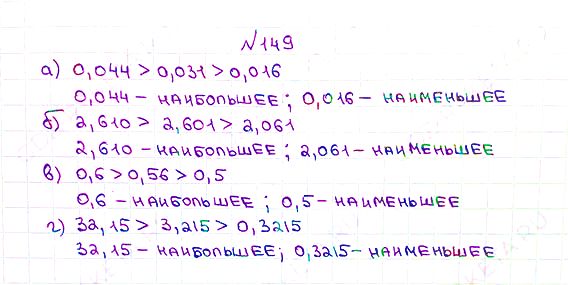 №149
а) 0,044 > 0,031 > 0,016
0,044 – НАИБОЛЬШЕЕ; 0,016 – НАИМЕНЬШЕЕ
б) 2,610 > 2,601 > 2,061
2,610 – НАИБОЛЬШЕЕ; 2,061 – НАИМЕНЬШЕЕ
в) 0,6 > 0,56 > 0,5
0,6 – НАИБОЛЬШЕЕ; 0,5 – НАИМЕНЬШЕЕ
г) 32,15 > 3,215 > 0,3215
32,15 – НАИБОЛЬШЕЕ; 0,3215 – НАИМЕНЬШЕЕ